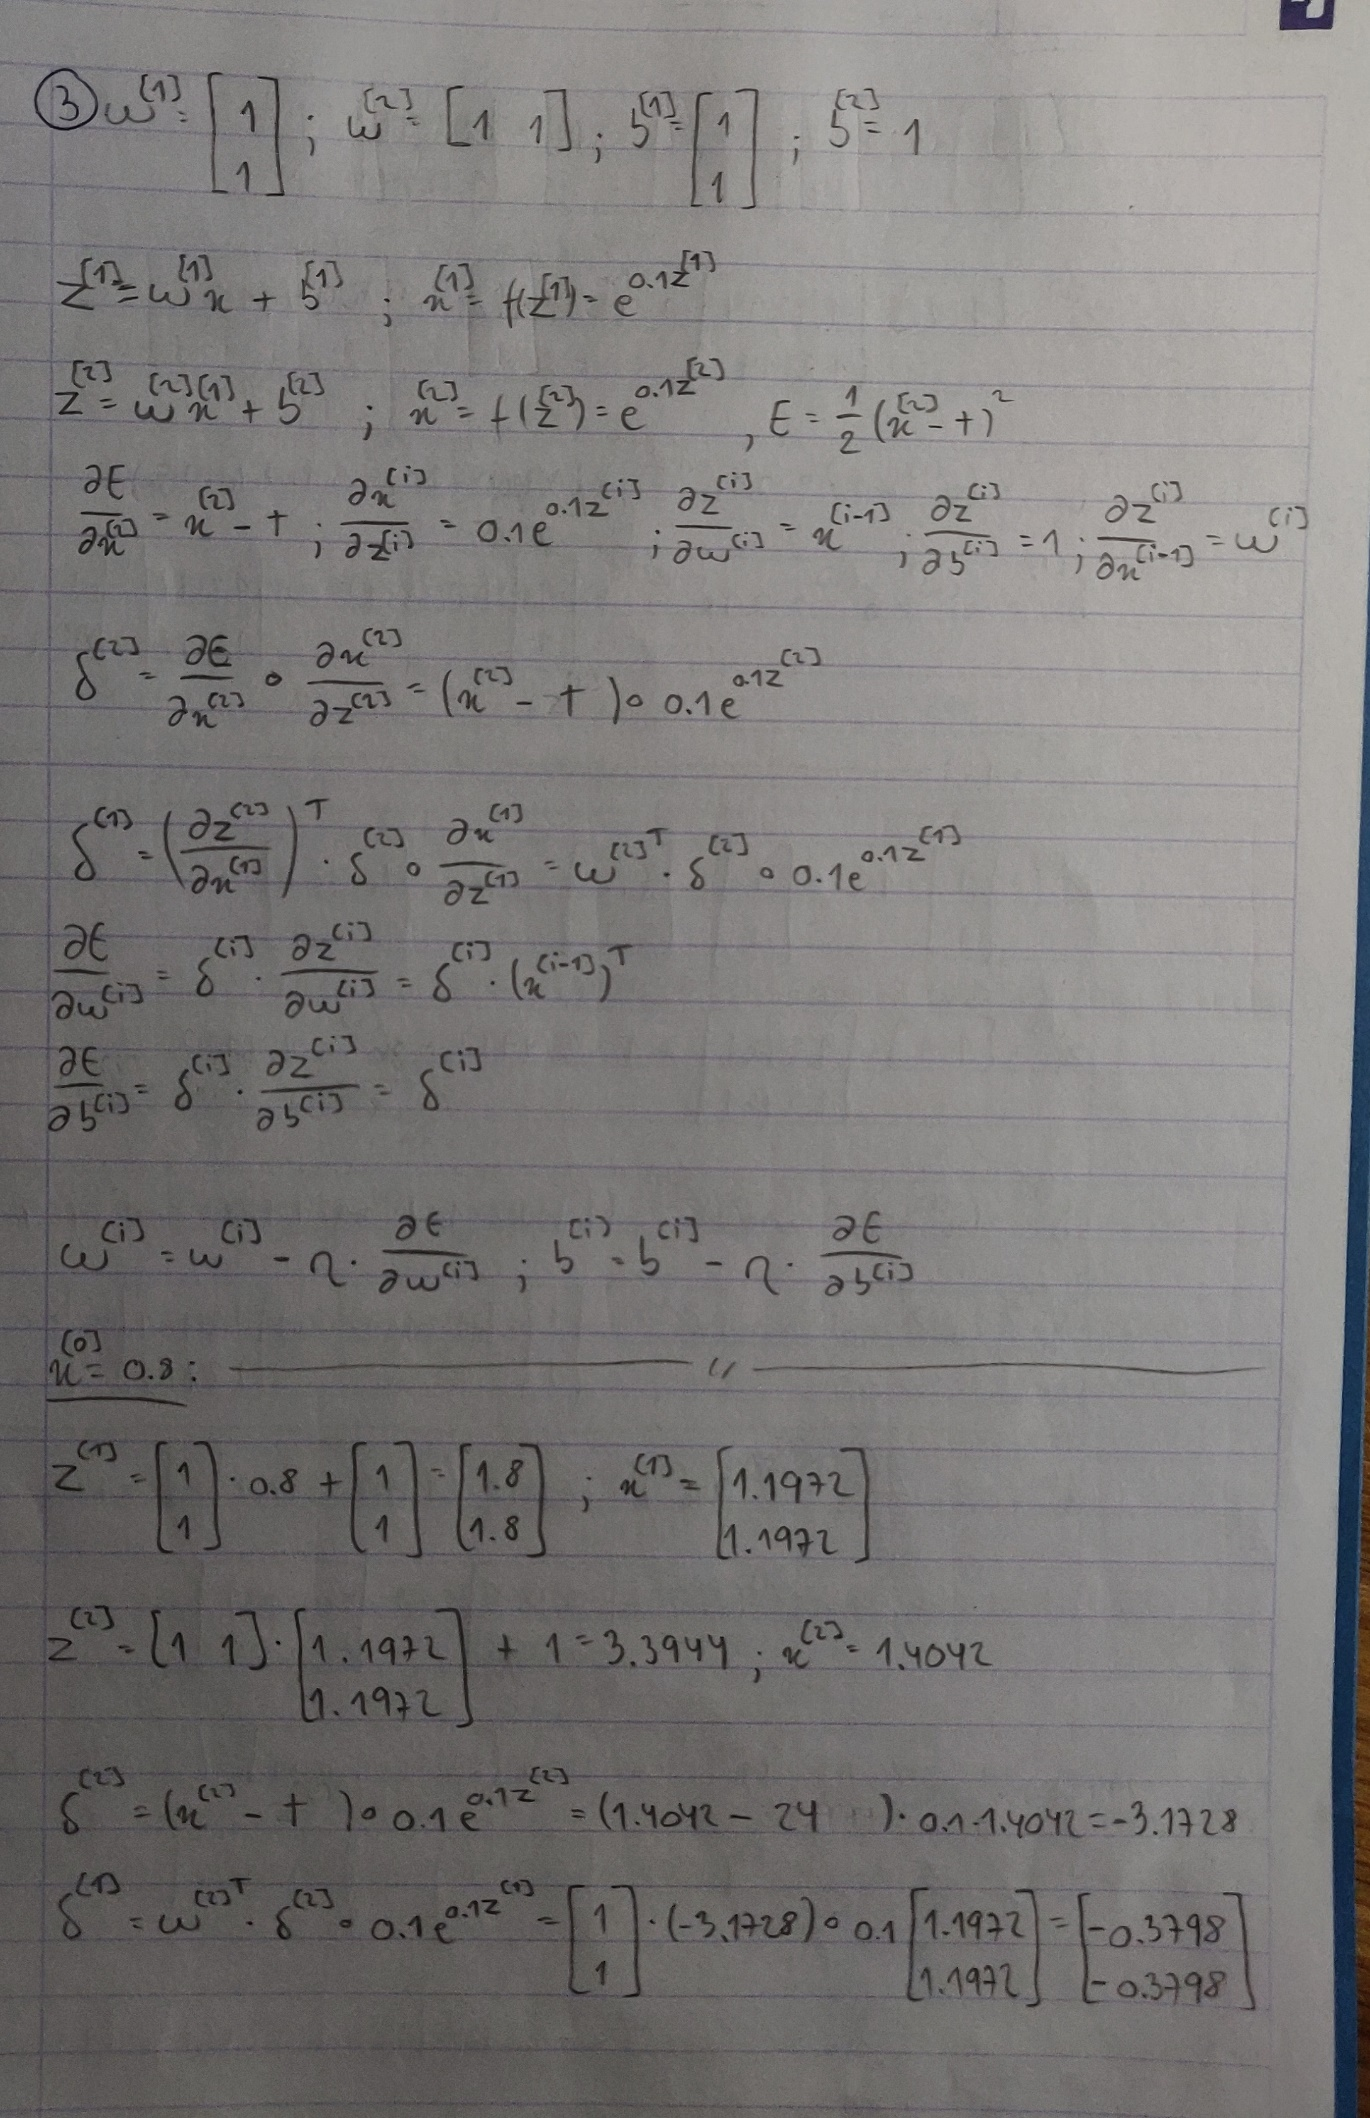 ③ w^[1] = [1 1]^T ; w^[2] = [1 1] ; b^[1] = [1 1]^T ; b^[2] = 1
z^[1] = w^[1] x + b^[1] ; x^[1] = f(z^[1]) = e^0.1z^[1]
z^[2] = w^[2] x^[1] + b^[2] ; x^[2] = f(z^[2]) = e^0.1z^[2] , E = 1/2 (x^[2] - t)^2
∂E/∂x^[2] = x^[2] - t ; ∂x^[i]/∂z^[i] = 0.1e^0.1z^[i] ; ∂z^[i]/∂w^[i] = x^[i-1] ; ∂z^[i]/∂b^[i] = 1 ; ∂z^[i]/∂x^[i-1] = w^[i]
δ^[2] = ∂E/∂x^[2] ∘ ∂x^[2]/∂z^[2] = (x^[2] - t) ∘ 0.1e^0.1z^[2]
δ^[1] = (∂z^[2]/∂x^[1])^T · δ^[2] ∘ ∂x^[1]/∂z^[1] = w^[2]^T · δ^[2] ∘ 0.1e^0.1z^[1]
∂E/∂w^[i] = δ^[i] · ∂z^[i]/∂w^[i] = δ^[i] · (x^[i-1])^T
∂E/∂b^[i] = δ^[i] · ∂z^[i]/∂b^[i] = δ^[i]
w^[i] = w^[i] - η · ∂E/∂w^[i] ; b^[i] = b^[i] - η · ∂E/∂b^[i]
x^[0] = 0.8 : —— 〃 ——
z^[1] = [1 1]^T · 0.8 + [1 1]^T = [1.8 1.8]^T ; x^[1] = [1.1972 1.1972]^T
z^[2] = [1 1] · [1.1972 1.1972]^T + 1 = 3.3944 ; x^[2] = 1.4042
δ^[2] = (x^[2] - t) ∘ 0.1e^0.1z^[2] = (1.4042 - 24) · 0.1 · 1.4042 = -3.1728
δ^[1] = w^[2]^T · δ^[2] ∘ 0.1e^0.1z^[1] = [1 1]^T · (-3.1728) ∘ 0.1 [1.1972 1.1972]^T = [-0.3798 -0.3798]^T